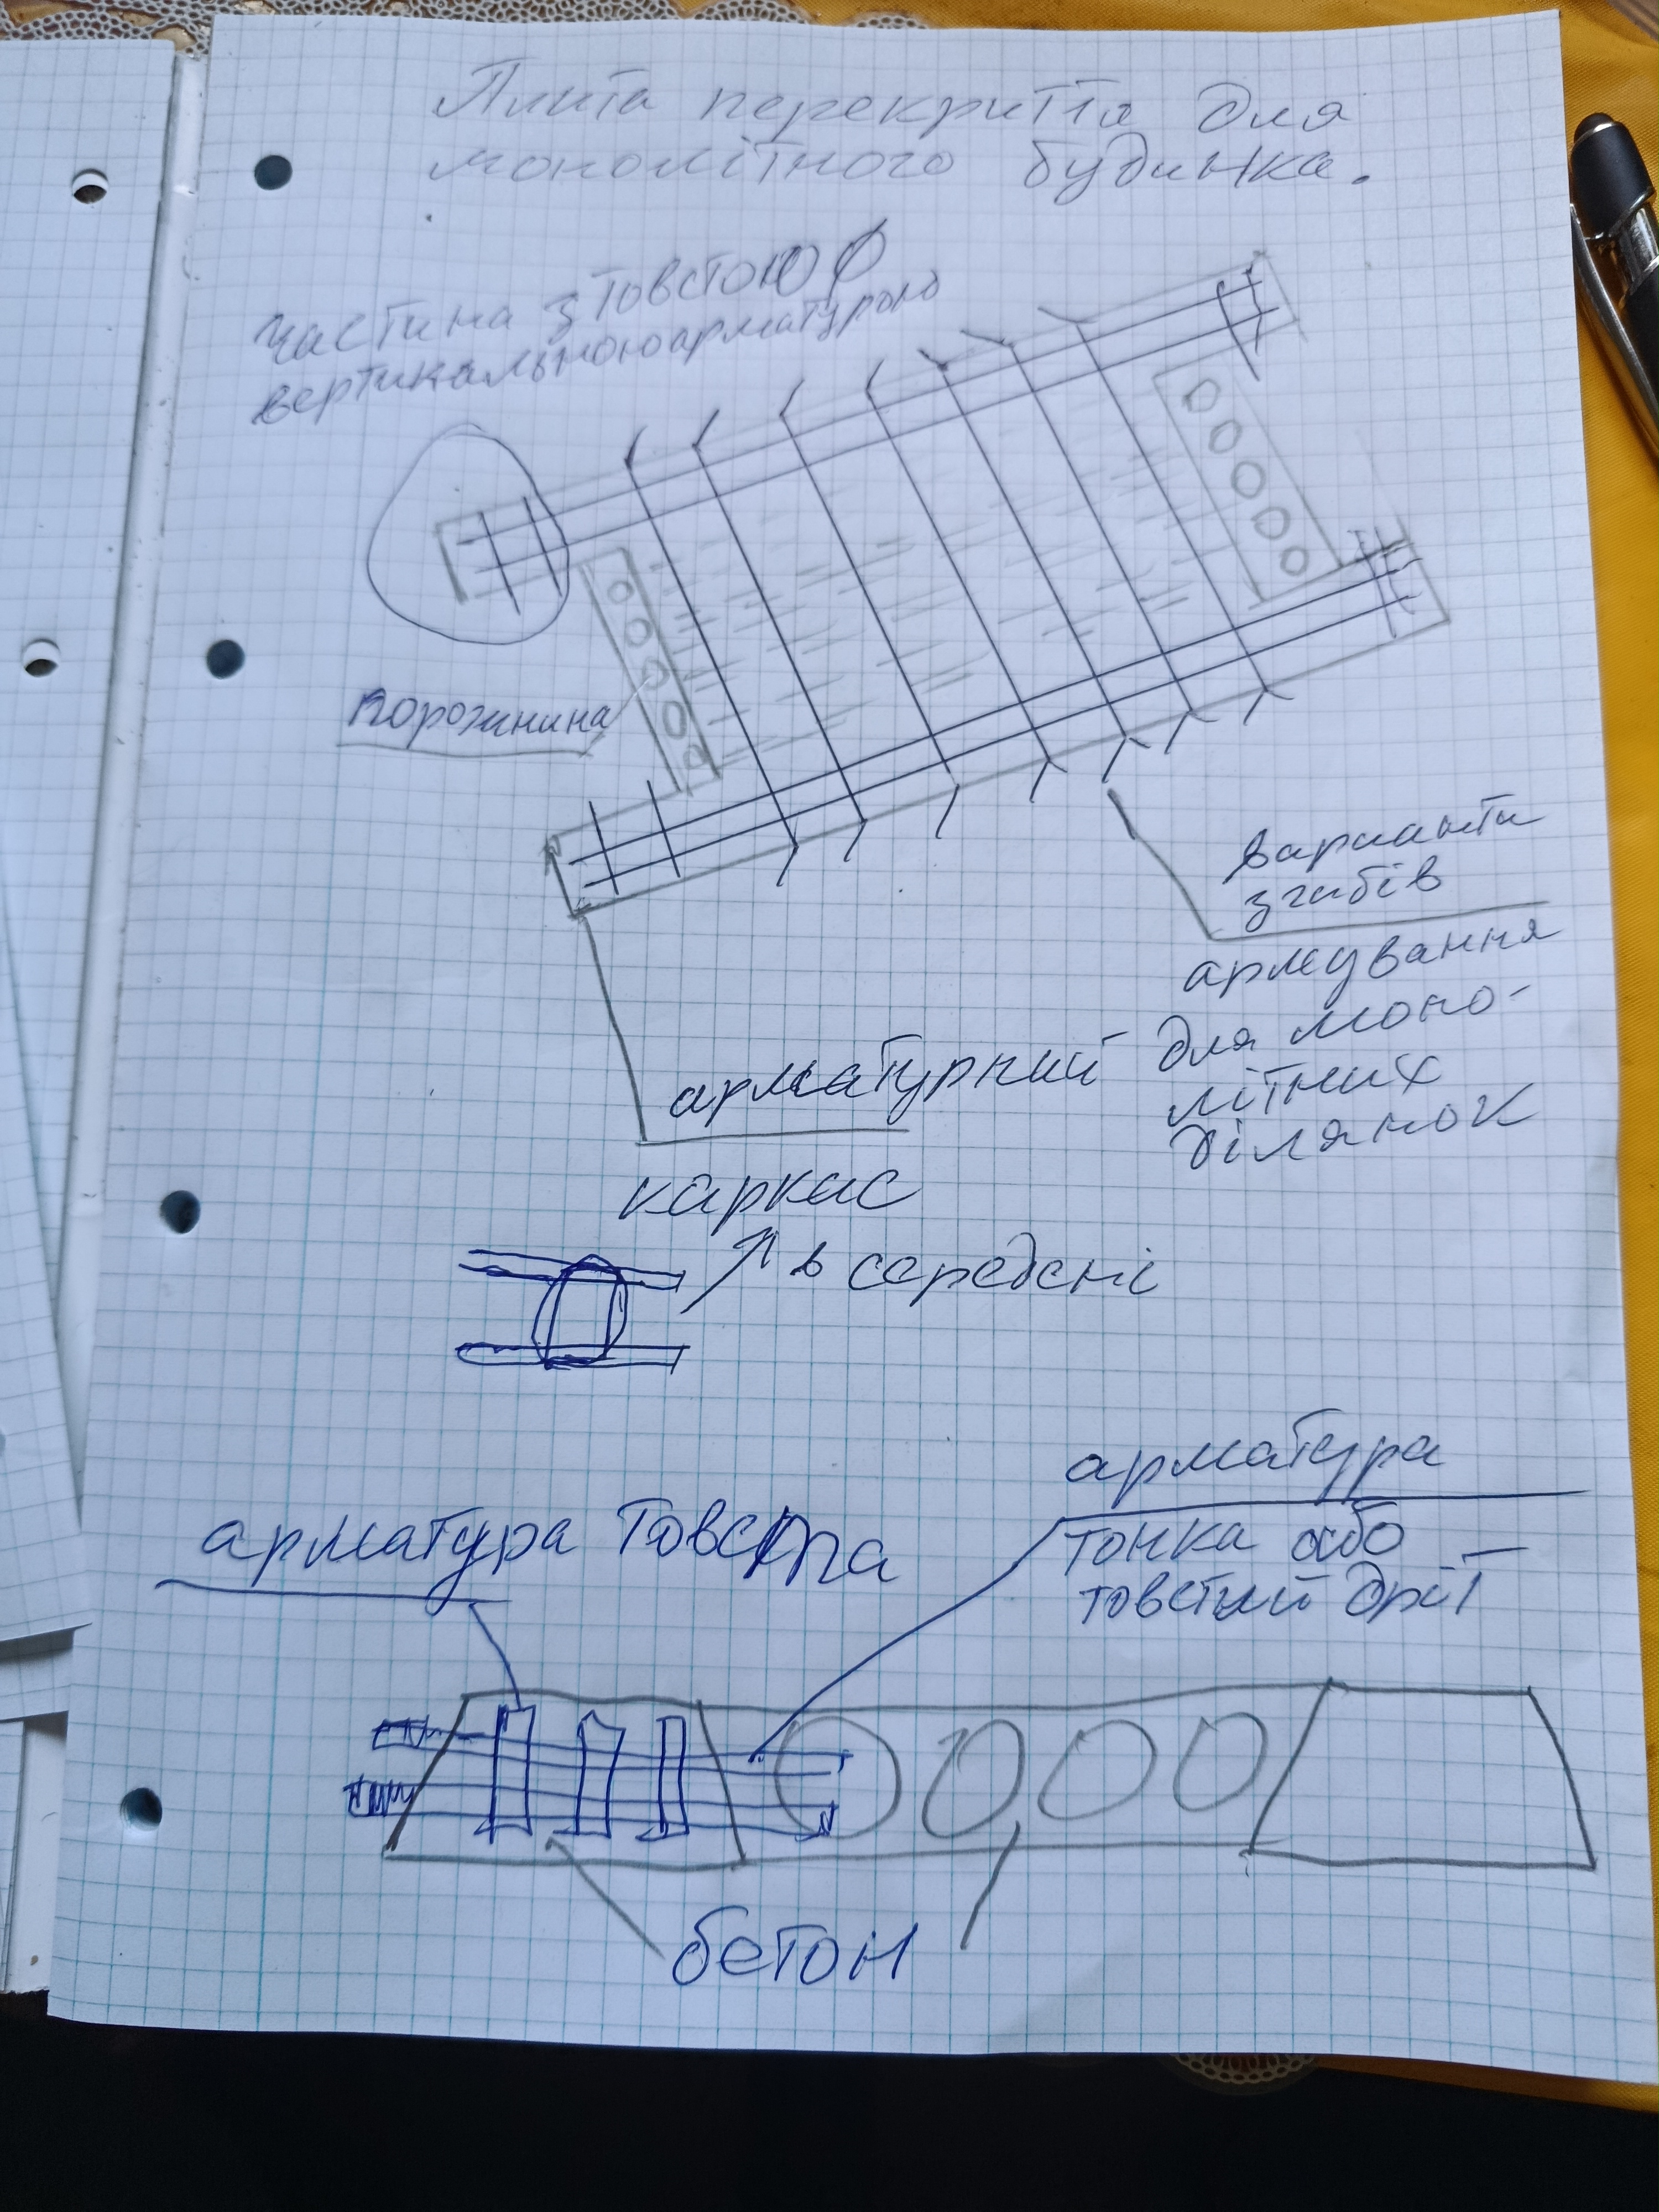 Плита перекриття для
монолітного будинка.
частина з товстою Ø
вертикальною арматурою
порожнина
варианти
згибів
армування
для моно-
літних
ділянок
арматурний
каркас
в середені
арматура
тонка або
товстий дріт
арматура товста
бетон